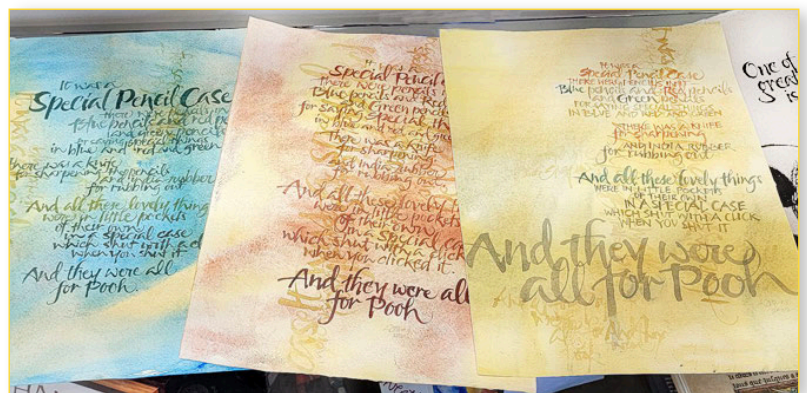 It was a
Special Pencil Case
there were pencils
Blue pencils and red pe
and green pencils
for saying special things
in blue and red and green
there was a knife
for sharpening the pencils
and india rubber
for rubbing out
And all these lovely things
were in little pockets
of their own
in a special case
which shut with a cl
when you shut it
And they were all
for Pooh.
It was a
Special Pencil
there were pencils
Blue pencils and Red
and Green pencils
for saying special th
in blue and red and gre
There was a knife
for sharpening
and india rubber
for rubbing out
And all these lovely
were in little pockets
of their own
in a special Ca
which shut with a click
when you clicked it.
And they were all
for Pooh
It was a
Special Pencil Case
THERE WERE PENCILS IN IT
Blue pencils and Red pencils
and Green pencils
FOR SAYING SPECIAL THINGS
IN BLUE AND RED AND GREEN
THERE WAS A KNIFE
for sharpening
AND INDIA RUBBER
for rubbing out
And all these lovely things
WERE IN LITTLE POCKETS
OF THEIR OWN
IN A SPECIAL CASE
WHICH SHUT WITH A CLICK
WHEN YOU SHUT IT
And they were
all for Pooh
One of
great
is